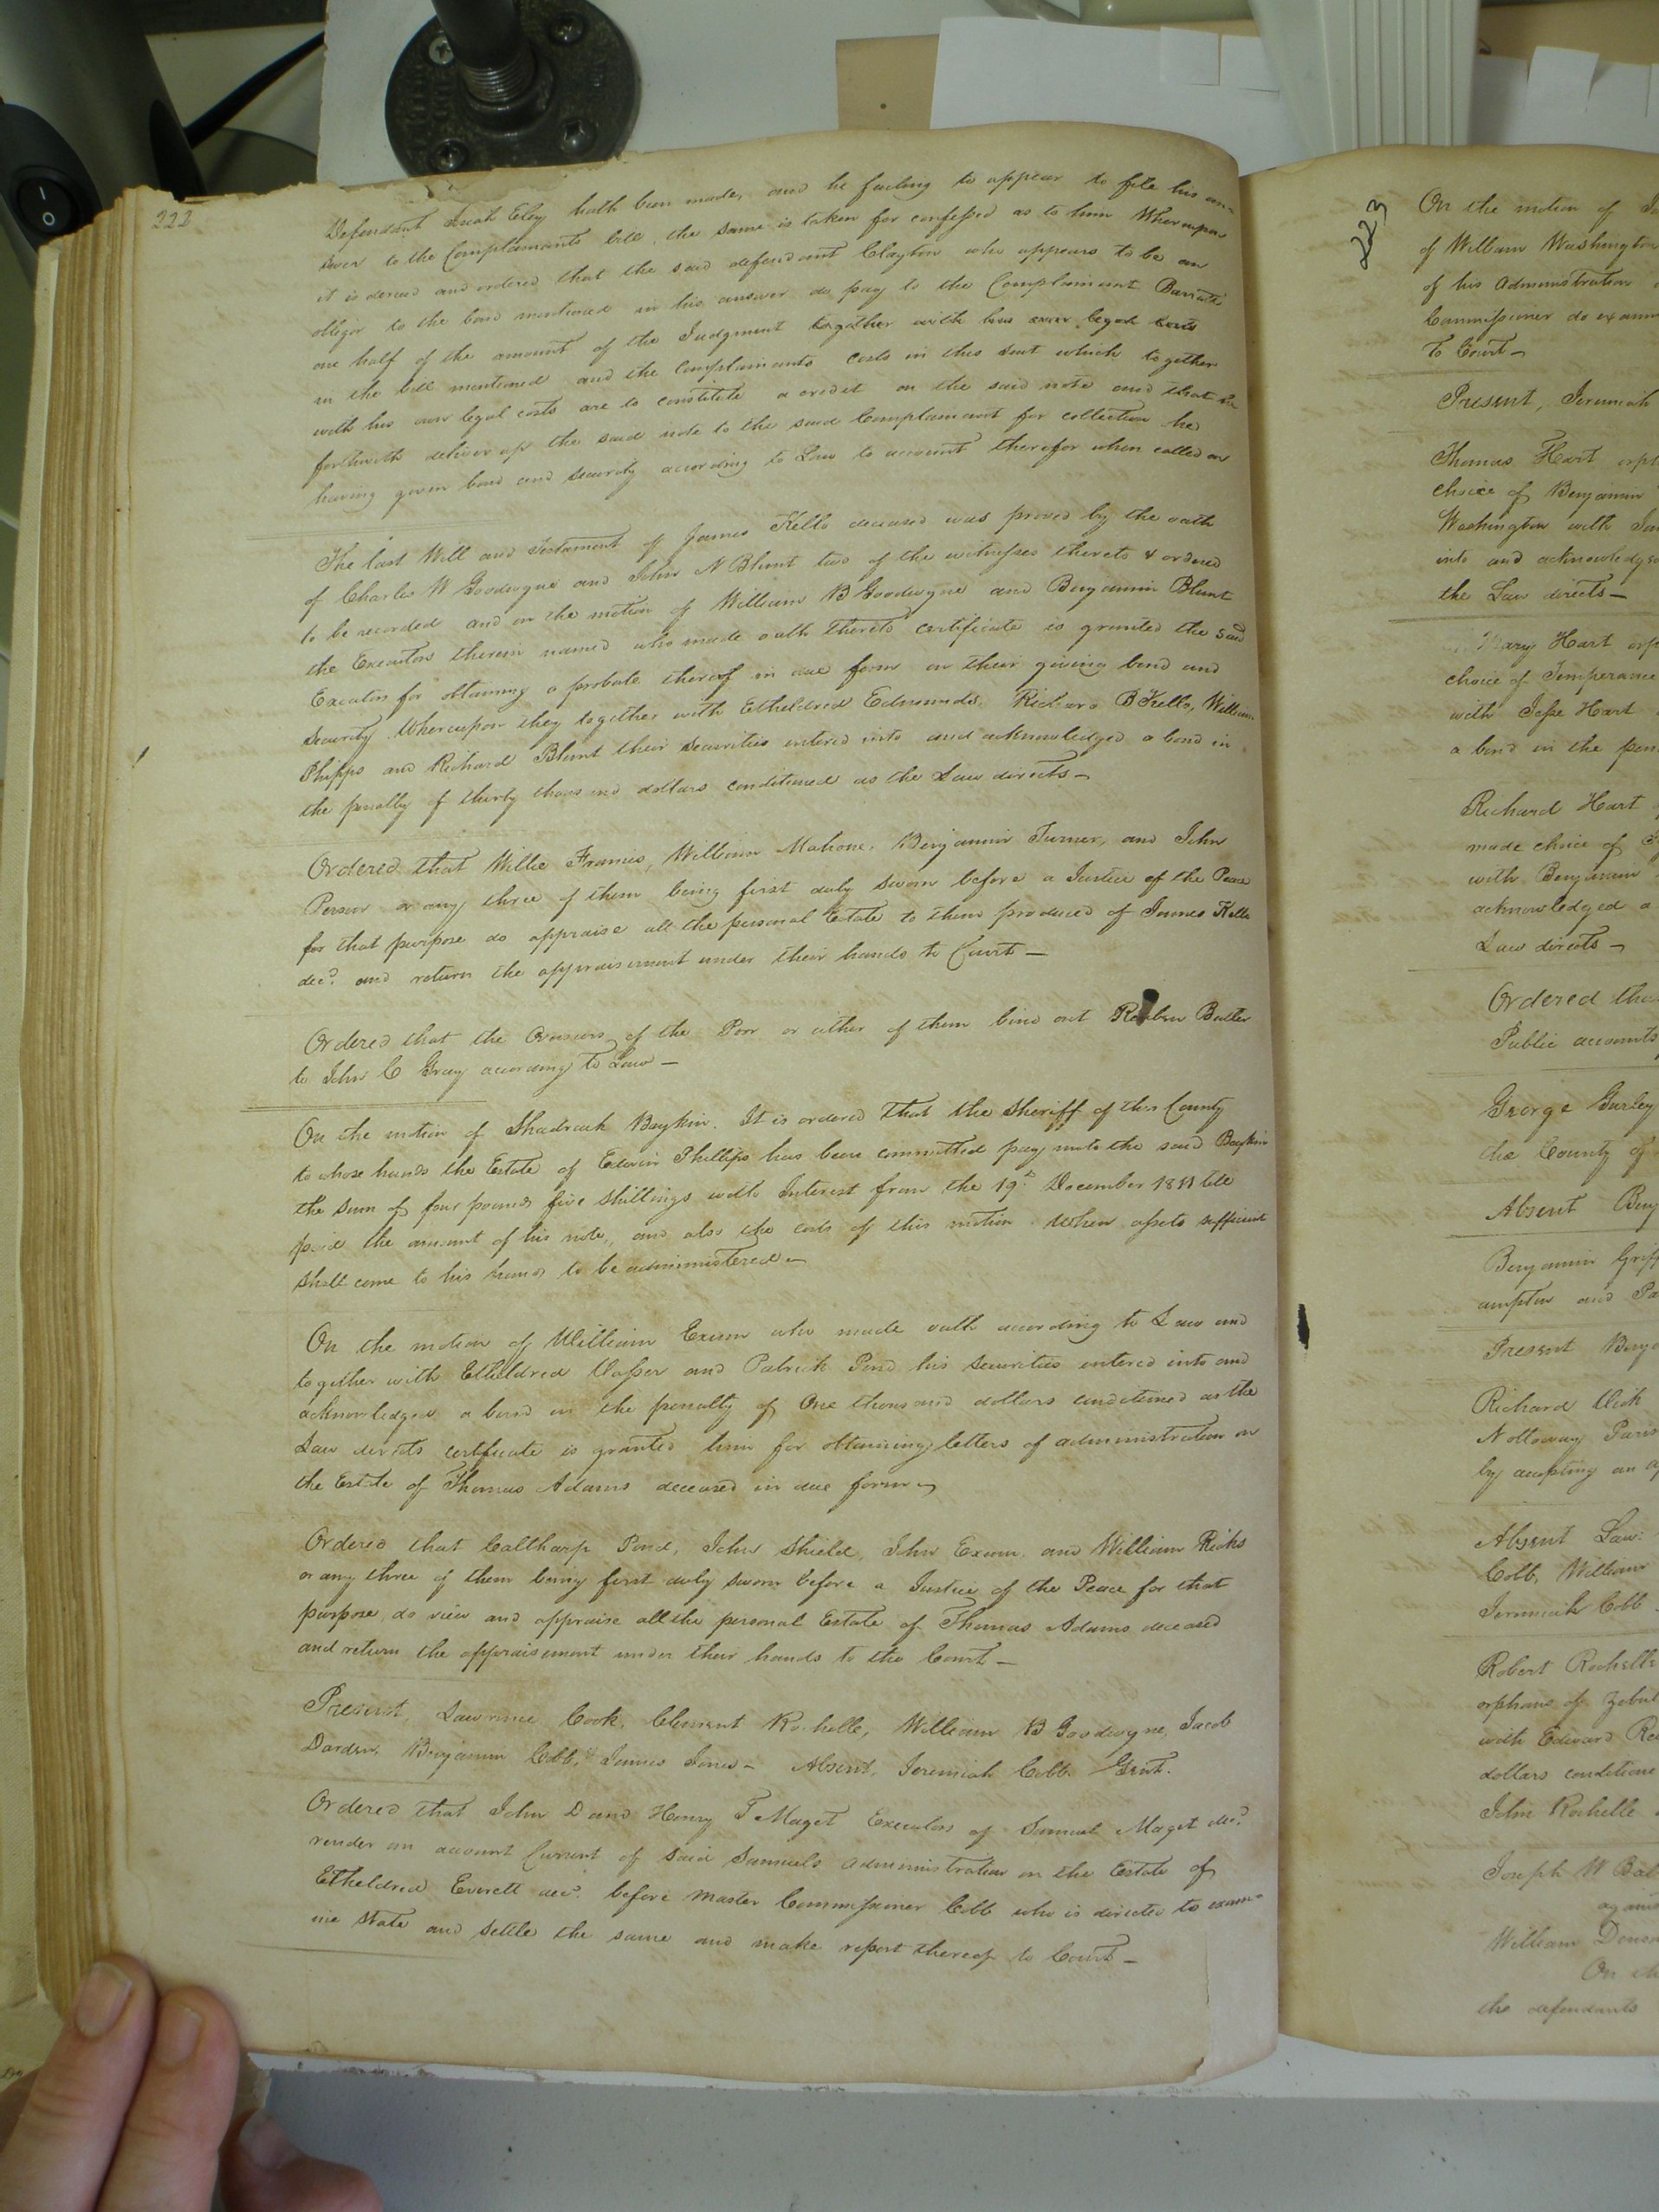 222
Defendant Isiah Eley hath been made, and he failing to appear to file his an-
swer to the Complainants bill, the same is taken for confessed as to him Whereupon
it is decreed and ordered that the said defendant Clayton who appears to be an
obligor to the bond mentioned in his answer do pay to the Complainant
one half of the amount of the Judgment together with his own legal costs
in the bill mentioned and the Complainants costs in this suit which together
with his own legal costs are to constitute a credit on the said note and that he
forthwith deliver up the said note to the said Complainant for collection he
having given bond and security according to Law to account therefor when called on
The last Will and Testament of James Kello deceased was proved by the oath
of Charles W Goodwyne and John N Blunt two of the witnesses thereto & ordered
to be recorded and on the motion of William B Goodwyne and Benjamin Blunt
the Executors therein named who made oath thereto certificate is granted the said
Executors for obtaining a probate thereof in due form on their giving bond and
security Whereupon they together with Etheldred Edmunds, Richard B Kello, William
Phipps and Richard Blunt their securities entered into and acknowledged a bond in
the penalty of thirty thousand dollars conditioned as the Law directs—
Ordered that Willie Francis, William Mahone, Benjamin Turner, and John
Person or any three of them being first duly sworn before a Justice of the Peace
for that purpose do appraise all the personal Estate to them produced of James Kello
decd. and return the appraisement under their hands to Court—
Ordered that the Overseers of the Poor or either of them bind out Reuben Butler
to John C Gray according to Law—
On the motion of Shadrach Boykin. It is ordered that the Sheriff of this County
to whose hands the Estate of Edwin Phillips has been committed pay unto the said Boykin
the sum of four pounds five shillings with Interest from the 19th December 1811 till
paid the amount of his note, and also the costs of this motion. When assets sufficient
shall come to his hands to be administered—
On the motion of William Exum who made oath according to Law and
together with Etheldred Vasser and Patrick Pond his securities entered into and
acknowledged a bond in the penalty of One thousand dollars conditioned as the
Law directs certificate is granted him for obtaining letters of administration on
the Estate of Thomas Adams deceased in due form—
Ordered that Caltharp Pond, John Shield, John Exum, and William Ricks
or any three of them being first duly sworn before a Justice of the Peace for that
purpose, do view and appraise all the personal Estate of Thomas Adams deceased
and return the appraisement under their hands to the Court—
Present, Lawrence Cook, Clement Rochelle, William B Goodwyne, Jacob
Darden, Benjamin Cobb, & James Jones— Absent, Jeremiah Cobb Gent.
Ordered that John D and Henry T Maget Executors of Samuel Maget decd.
render an account Current of said Samuels administration on the Estate of
Etheldred Everett decd. before Master Commissioner Cobb who is directed to exam-
ine state and settle the same and make report thereof to Court—
223
On the motion of
of William Washington
of his Administration
Commissioner do exam
to Court—
Present, Jeremiah
Thomas Hart orph
choice of Benjamin
Washington with
into and acknowledge
the Law directs—
Mary Hart orp
choice of Temperance
with Jesse Hart
a bond in the pen
Richard Hart
made choice of
with Benjamin
acknowledged a
Law directs—
Ordered tha
Public accounts
George Gurley
the County of
Absent Benj
Benjamin Griff
ampton and Pa
Present Benja
Richard Vick
Nottoway Paris
by accepting an
Absent Law:
Cobb, William
Jeremiah Cobb
Robert Rochelle
orphans of Zebul
with Edward Re
dollars conditione
John Rochelle
Joseph W Bal
again
William Denso
On the
the defendants